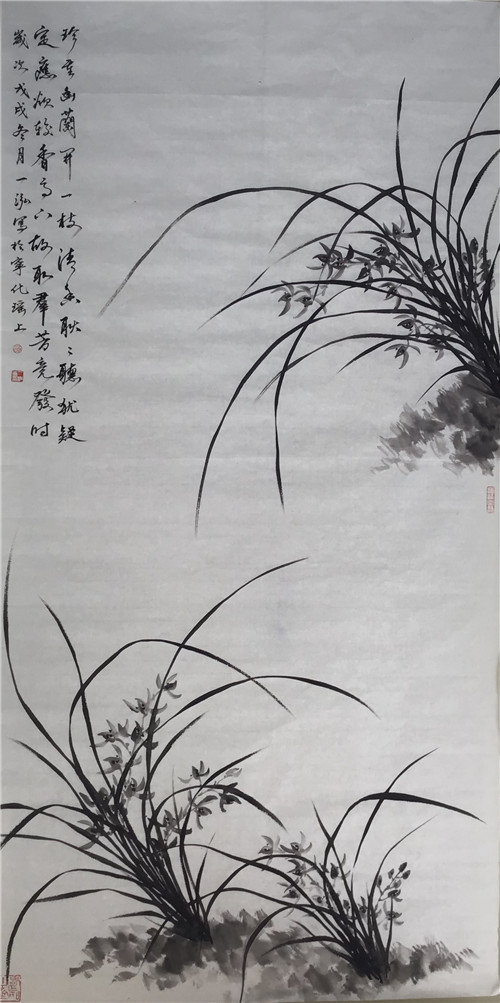 珍重幽蘭開一枝清香耿〻聽犹疑
定應欲較香高下故取群芳竞發时
歲次戊戌冬月一泓寫於寧化瑶上